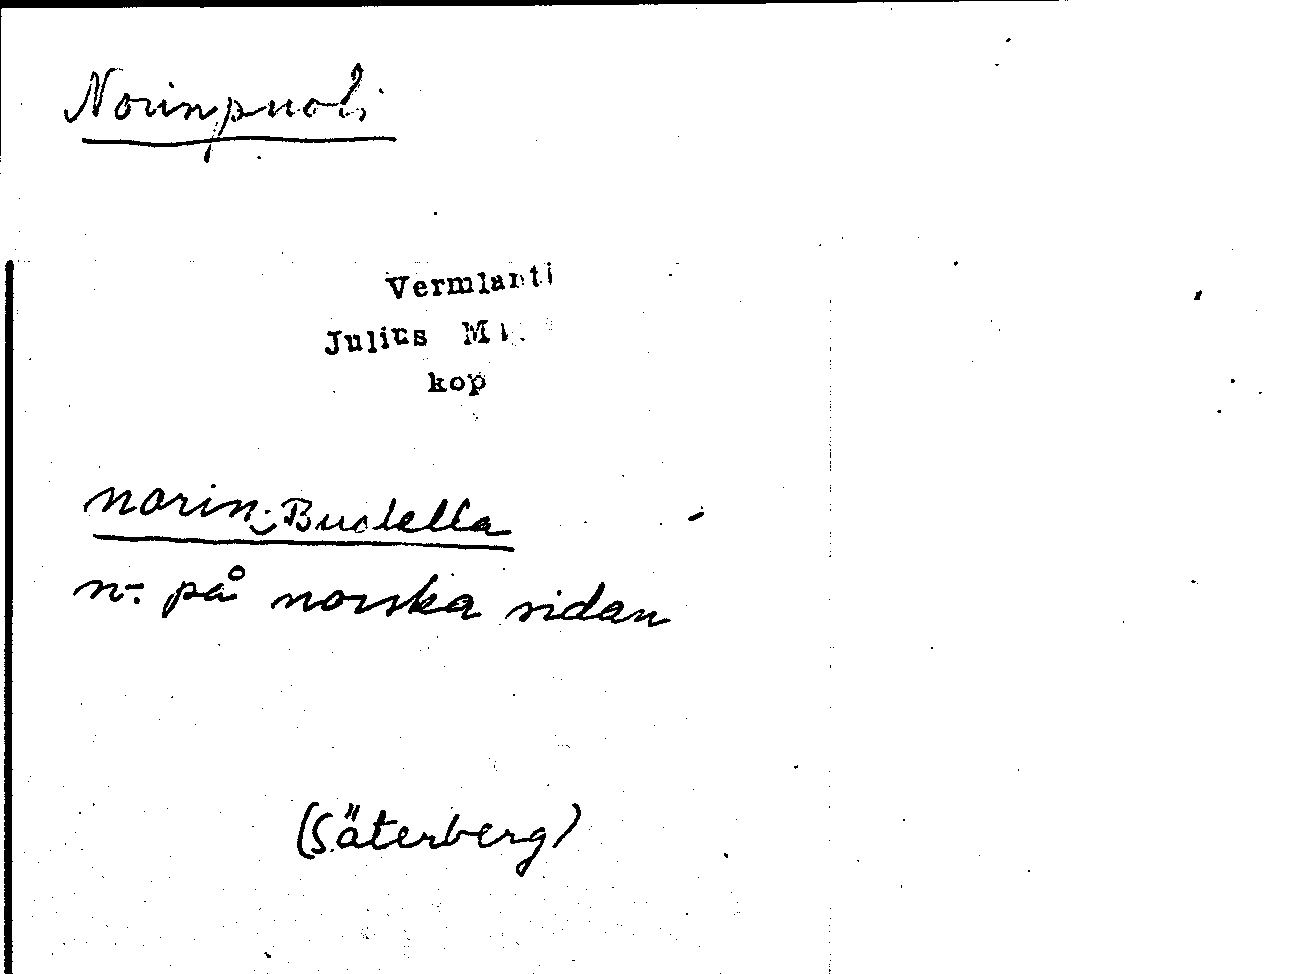 Norinpuoli
Vermlanti
Julius
kop
norin‿Buolella
n-. på norska sidan
(Säterberg)